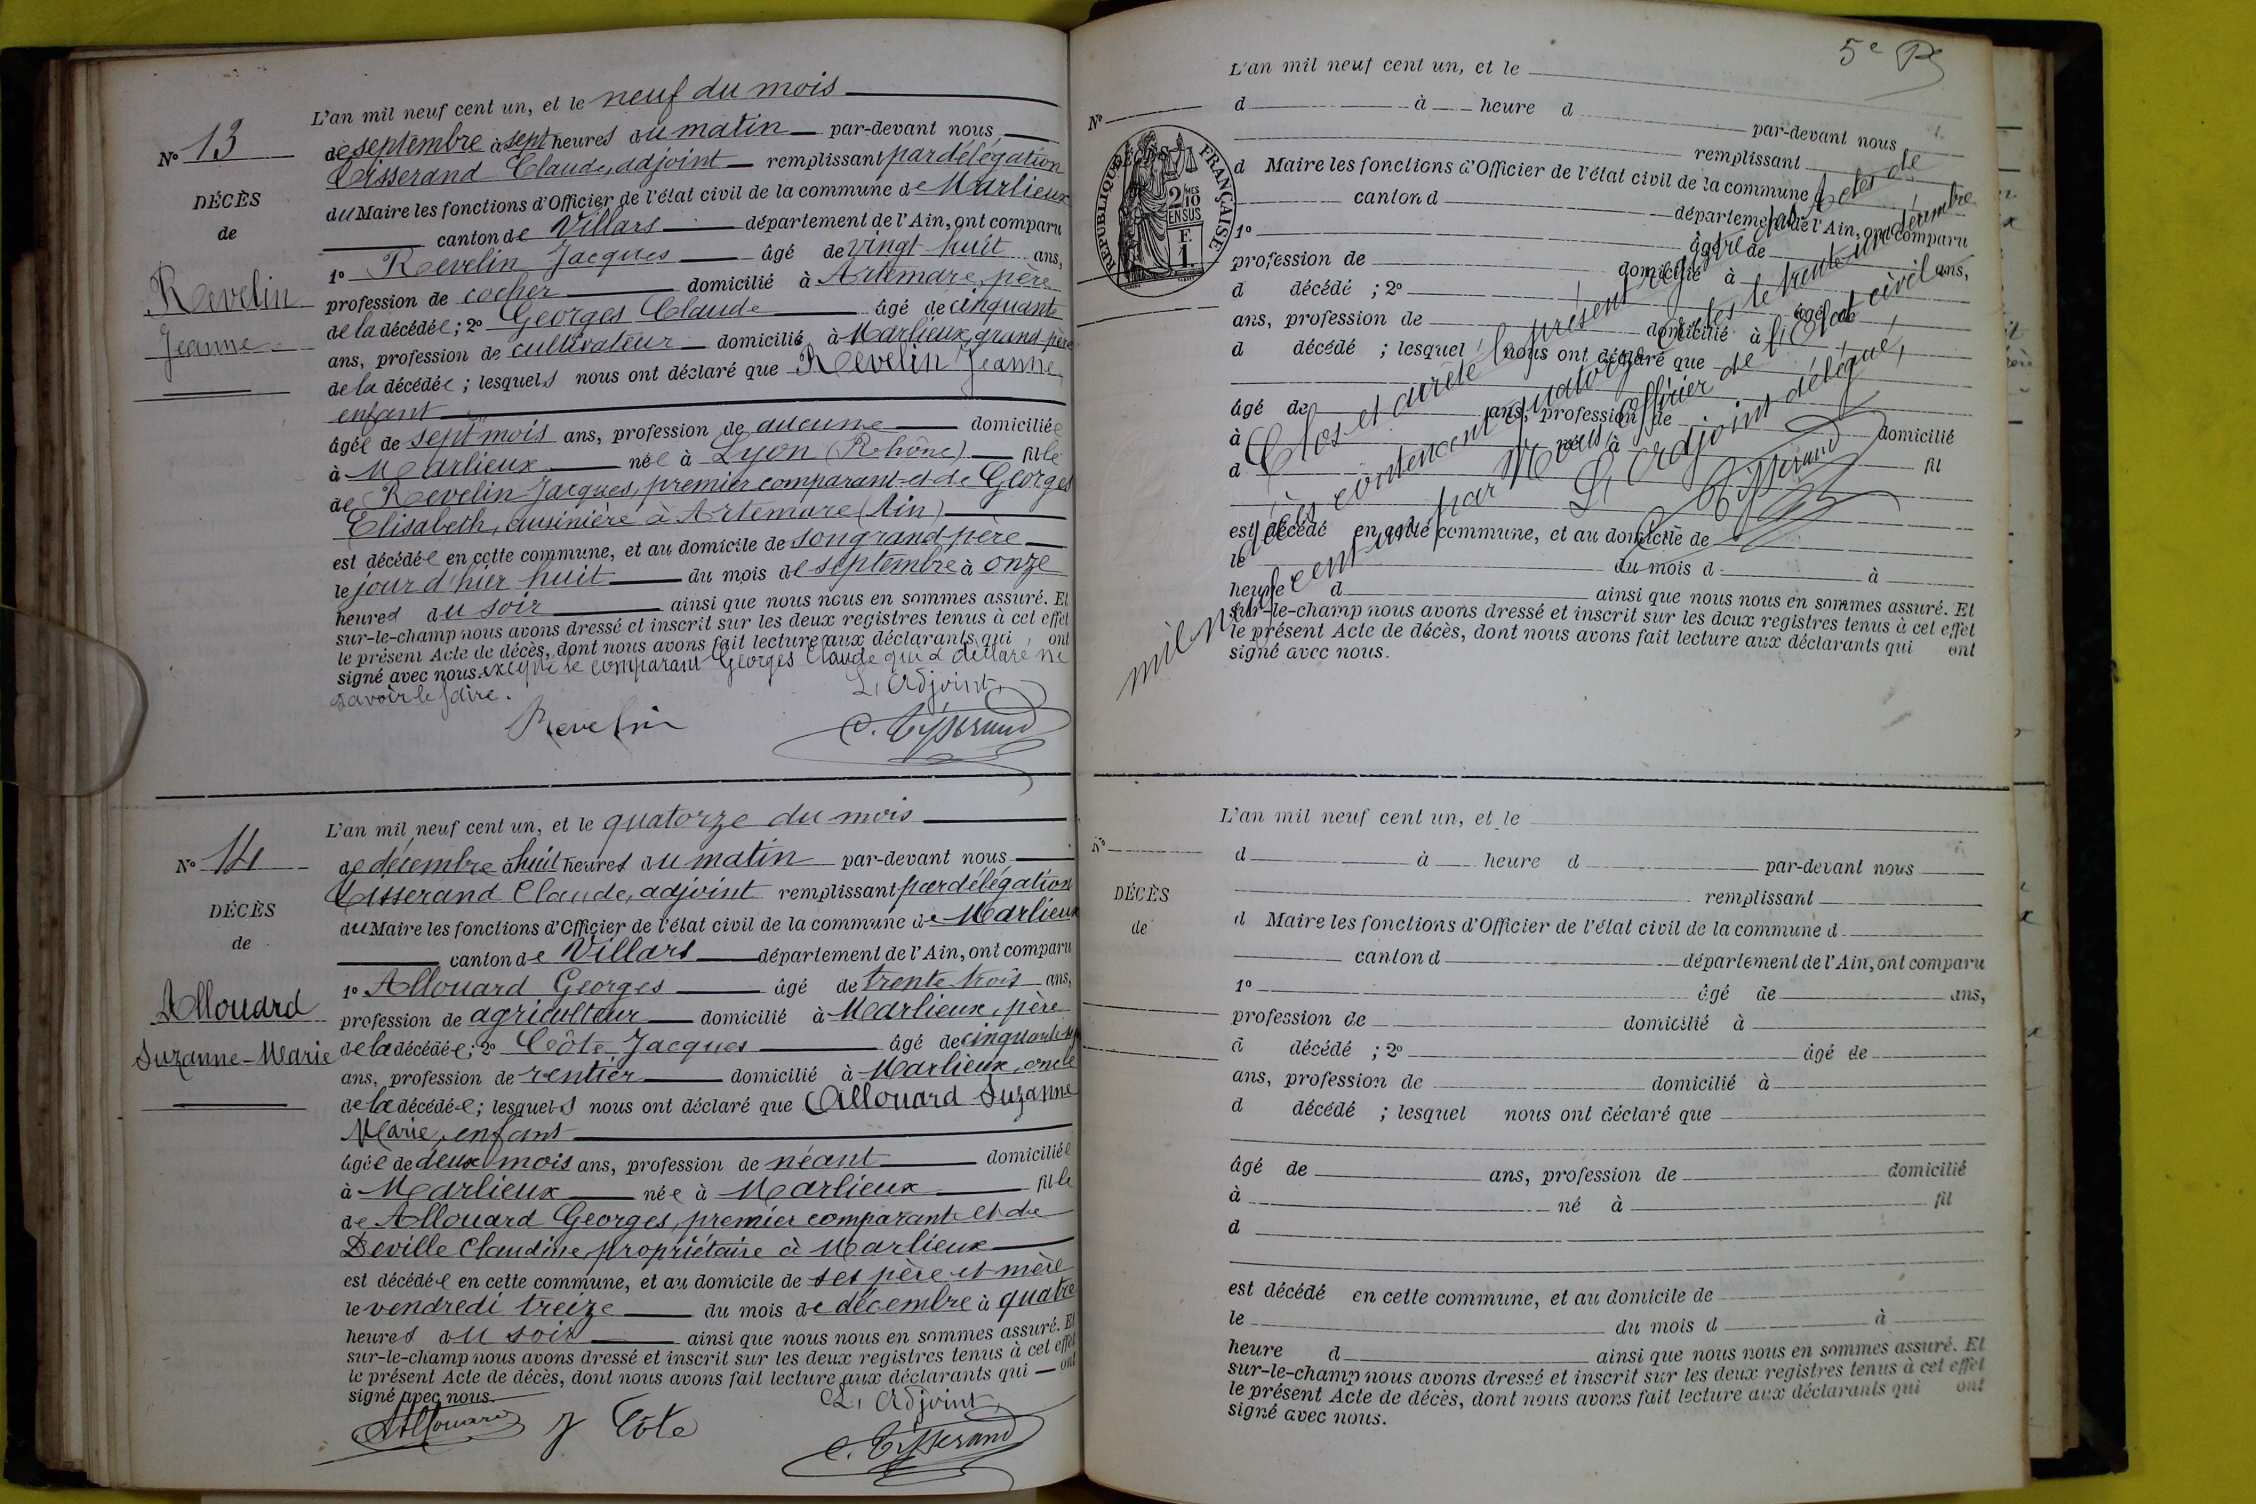 L'an mil neuf cent un, et le neuf du mois
de septembre à sept heures du matin par-devant nous
Tisserand Claude, adjoint remplissant par délégation
du Maire les fonctions d'Officier de l'état civil de la commune de Marlieux
canton de Villars département de l'Ain, ont comparu
1º Revelin Jacques âgé de vingt huit ans,
profession de cocher domicilié à Artemare, père
de la décédée; 2º Georges Claude âgé de cinquante
ans, profession de cultivateur domicilié à Marlieux, grand père
de la décédée; lesquels nous ont déclaré que Revelin Jeanne
enfant
âgée de sept mois ans, profession de aucune domiciliée
à Marlieux née à Lyon (Rhône) fille
de Revelin Jacques, premier comparant et de Georges
Elisabeth, cuisinière à Artemare (Ain)
est décédée en cette commune, et au domicile de son grand-père
le jour d'hier huit du mois de septembre à onze
heures du soir ainsi que nous nous en sommes assuré. Et
sur-le-champ nous avons dressé et inscrit sur les deux registres tenus à cet effet
le présent Acte de décès, dont nous avons fait lecture aux déclarants qui ont
signé avec nous. excepté le comparant Georges Claude qui a déclaré ne
savoir le faire.
L'Adjoint,
Revelin
C. Tisserand
Nº 13
DÉCÈS
de
Revelin
Jeanne
L'an mil neuf cent un, et le quatorze du mois
de décembre à huit heures du matin par-devant nous
Tisserand Claude, adjoint remplissant par délégation
du Maire les fonctions d'Officier de l'état civil de la commune de Marlieux
canton de Villars département de l'Ain, ont comparu
1º Allouard Georges âgé de trente trois ans,
profession de agriculteur domicilié à Marlieux, père
de la décédée; 2º Côte Jacques âgé de cinquante
ans, profession de rentier domicilié à Marlieux, oncle
de la décédée; lesquels nous ont déclaré que Allouard Suzanne
Marie, enfant
âgée de deux mois ans, profession de néant domiciliée
à Marlieux née à Marlieux fille
de Allouard Georges, premier comparant et de
Deville Claudine, propriétaire à Marlieux
est décédée en cette commune, et au domicile de ses père et mère
le vendredi treize du mois de décembre à quatre
heures du soir ainsi que nous nous en sommes assuré. Et
sur-le-champ nous avons dressé et inscrit sur les deux registres tenus à cet effet
le présent Acte de décès, dont nous avons fait lecture aux déclarants qui ont
signé avec nous.
L'Adjoint,
Allouard J Cote
C. Tisserand
Nº 14
DÉCÈS
de
Allouard
Suzanne-Marie
5e
L'an mil neuf cent un, et le
d à heure d par-devant nous
remplissant
d Maire les fonctions d'Officier de l'état civil de la commune d
canton d département de l'Ain, ont comparu
1º âgé de ans,
profession de domicilié à
d décédé ; 2º âgé de
ans, profession de domicilié à
d décédé ; lesquel nous ont déclaré que
âgé de ans, profession de domicilié
à né à fil
d
est décédé en cette commune, et au domicile de
le du mois d à
heure d ainsi que nous nous en sommes assuré. Et
sur-le-champ nous avons dressé et inscrit sur les deux registres tenus à cet effet
le présent Acte de décès, dont nous avons fait lecture aux déclarants qui ont
signé avec nous.
Nº
DÉCÈS
RÉPUBLIQUE FRANÇAISE
2 MES
10
EN SUS
F.
1.
Clos et arrêté le présent registre des Actes de
décès contenant quatorze actes le trente un décembre
mil neuf cent un par Nous, officier de l'Etat civil
L'Adjoint délégué,
C. Tisserand
L'an mil neuf cent un, et le
d à heure d par-devant nous
remplissant
d Maire les fonctions d'Officier de l'état civil de la commune d
canton d département de l'Ain, ont comparu
1º âgé de ans,
profession de domicilié à
d décédé ; 2º âgé de
ans, profession de domicilié à
d décédé ; lesquel nous ont déclaré que
âgé de ans, profession de domicilié
à né à fil
d
est décédé en cette commune, et au domicile de
le du mois d à
heure d ainsi que nous nous en sommes assuré. Et
sur-le-champ nous avons dressé et inscrit sur les deux registres tenus à cet effet
le présent Acte de décès, dont nous avons fait lecture aux déclarants qui ont
signé avec nous.
Nº
DÉCÈS
de